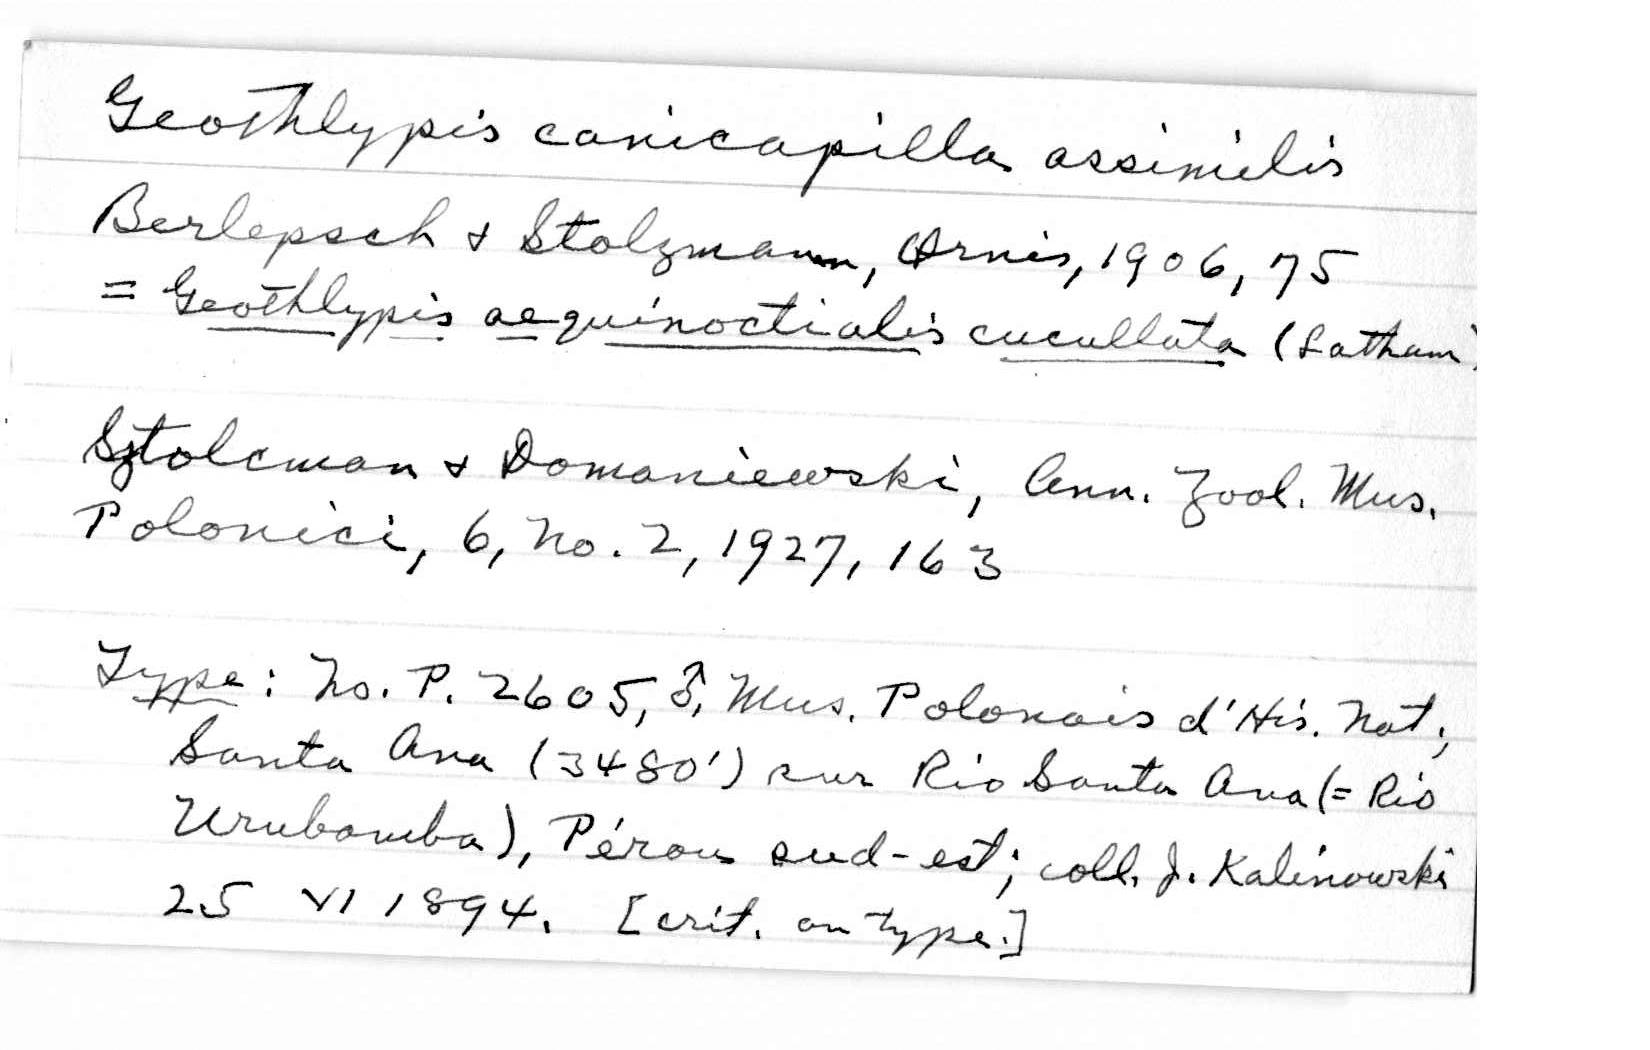 Geothlypis canicapilla assimilis
Berlepsch & Stolzmann, Ornis, 1906, 75
= Geothlypis aequinoctialis cucullata (Latham)
Sztolcman & Domaniewski, Ann. Zool. Mus.
Polonici, 6, No. 2, 1927, 163
Type: No. P. 2605, ♂, Mus. Polonais d'His. Nat;
Santa Ana (3480') sur Rio Santa Ana (= Rio
Urubamba), Pérou sud-est; coll. J. Kalinowski
25 VI 1894. [crit. on type.]